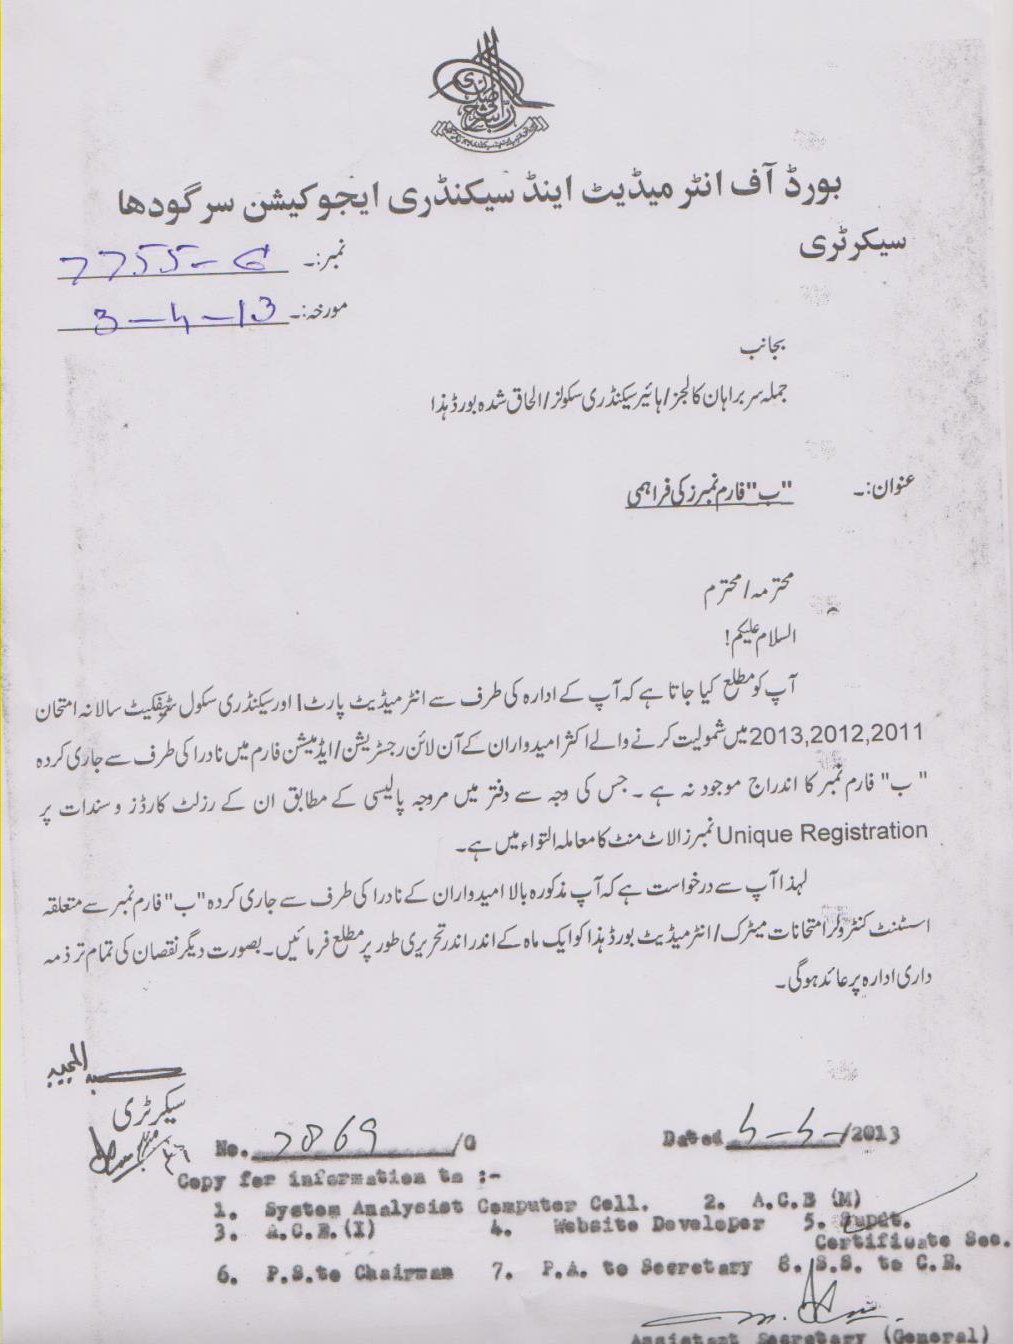 بورڈ آف انٹر میڈیٹ اینڈ سیکنڈری ایجوکیشن سرگودھا
سیکرٹری
نمبر:۔ 7755-G
مورخہ:۔ 3-4-13
بجانب
جملہ سربراہان کالجز/ہائیر سیکنڈری سکولز/الحاق شدہ بورڈ ہذا
عنوان:۔ "ب" فارم نمبرز کی فراہمی
محترمہ/محترم
السلام علیکم!
آپ کو مطلع کیا جاتا ہے کہ آپ کے ادارہ کی طرف سے انٹرمیڈیٹ پارٹ I اور سیکنڈری سکول سٹیفکیٹ سالانہ امتحان
2013,2012,2011 میں شمولیت کرنے والے اکثر امیدواران کے آن لائن رجسٹریشن/ایڈمیشن فارم میں نادرا کی طرف سے جاری کردہ
"ب" فارم نمبر کا اندراج موجود نہ ہے ۔ جس کی وجہ سے دفتر میں مروجہ پالیسی کے مطابق ان کے رزلٹ کارڈز و سندات پر
Unique Registration نمبرز الاٹ منٹ کا معاملہ التواء میں ہے۔
لہذا آپ سے درخواست ہے کہ آپ مذکورہ بالا امیدواران کے نادرا کی طرف سے جاری کردہ "ب" فارم نمبر سے متعلقہ
اسسٹنٹ کنٹرولر امتحانات میٹرک/انٹرمیڈیٹ بورڈ ہذا کو ایک ماہ کے اندر اندر تحریری طور پر مطلع فرمائیں۔ بصورت دیگر نقصان کی تمام تر ذمہ
داری ادارہ پر عائد ہوگی۔
سیکرٹری
No. 7869 /G Dated /2013
Copy for information to :-
1. System Analysist Computer Cell. 2. A.C.E (M)
3. A.C.E.(I) 4. Website Developer 5. Supdt.
Certificate Sec.
6. P.S.to Chairman 7. P.A. to Secretary 8. S.S. to C.E.
Assistant Secretary (General)